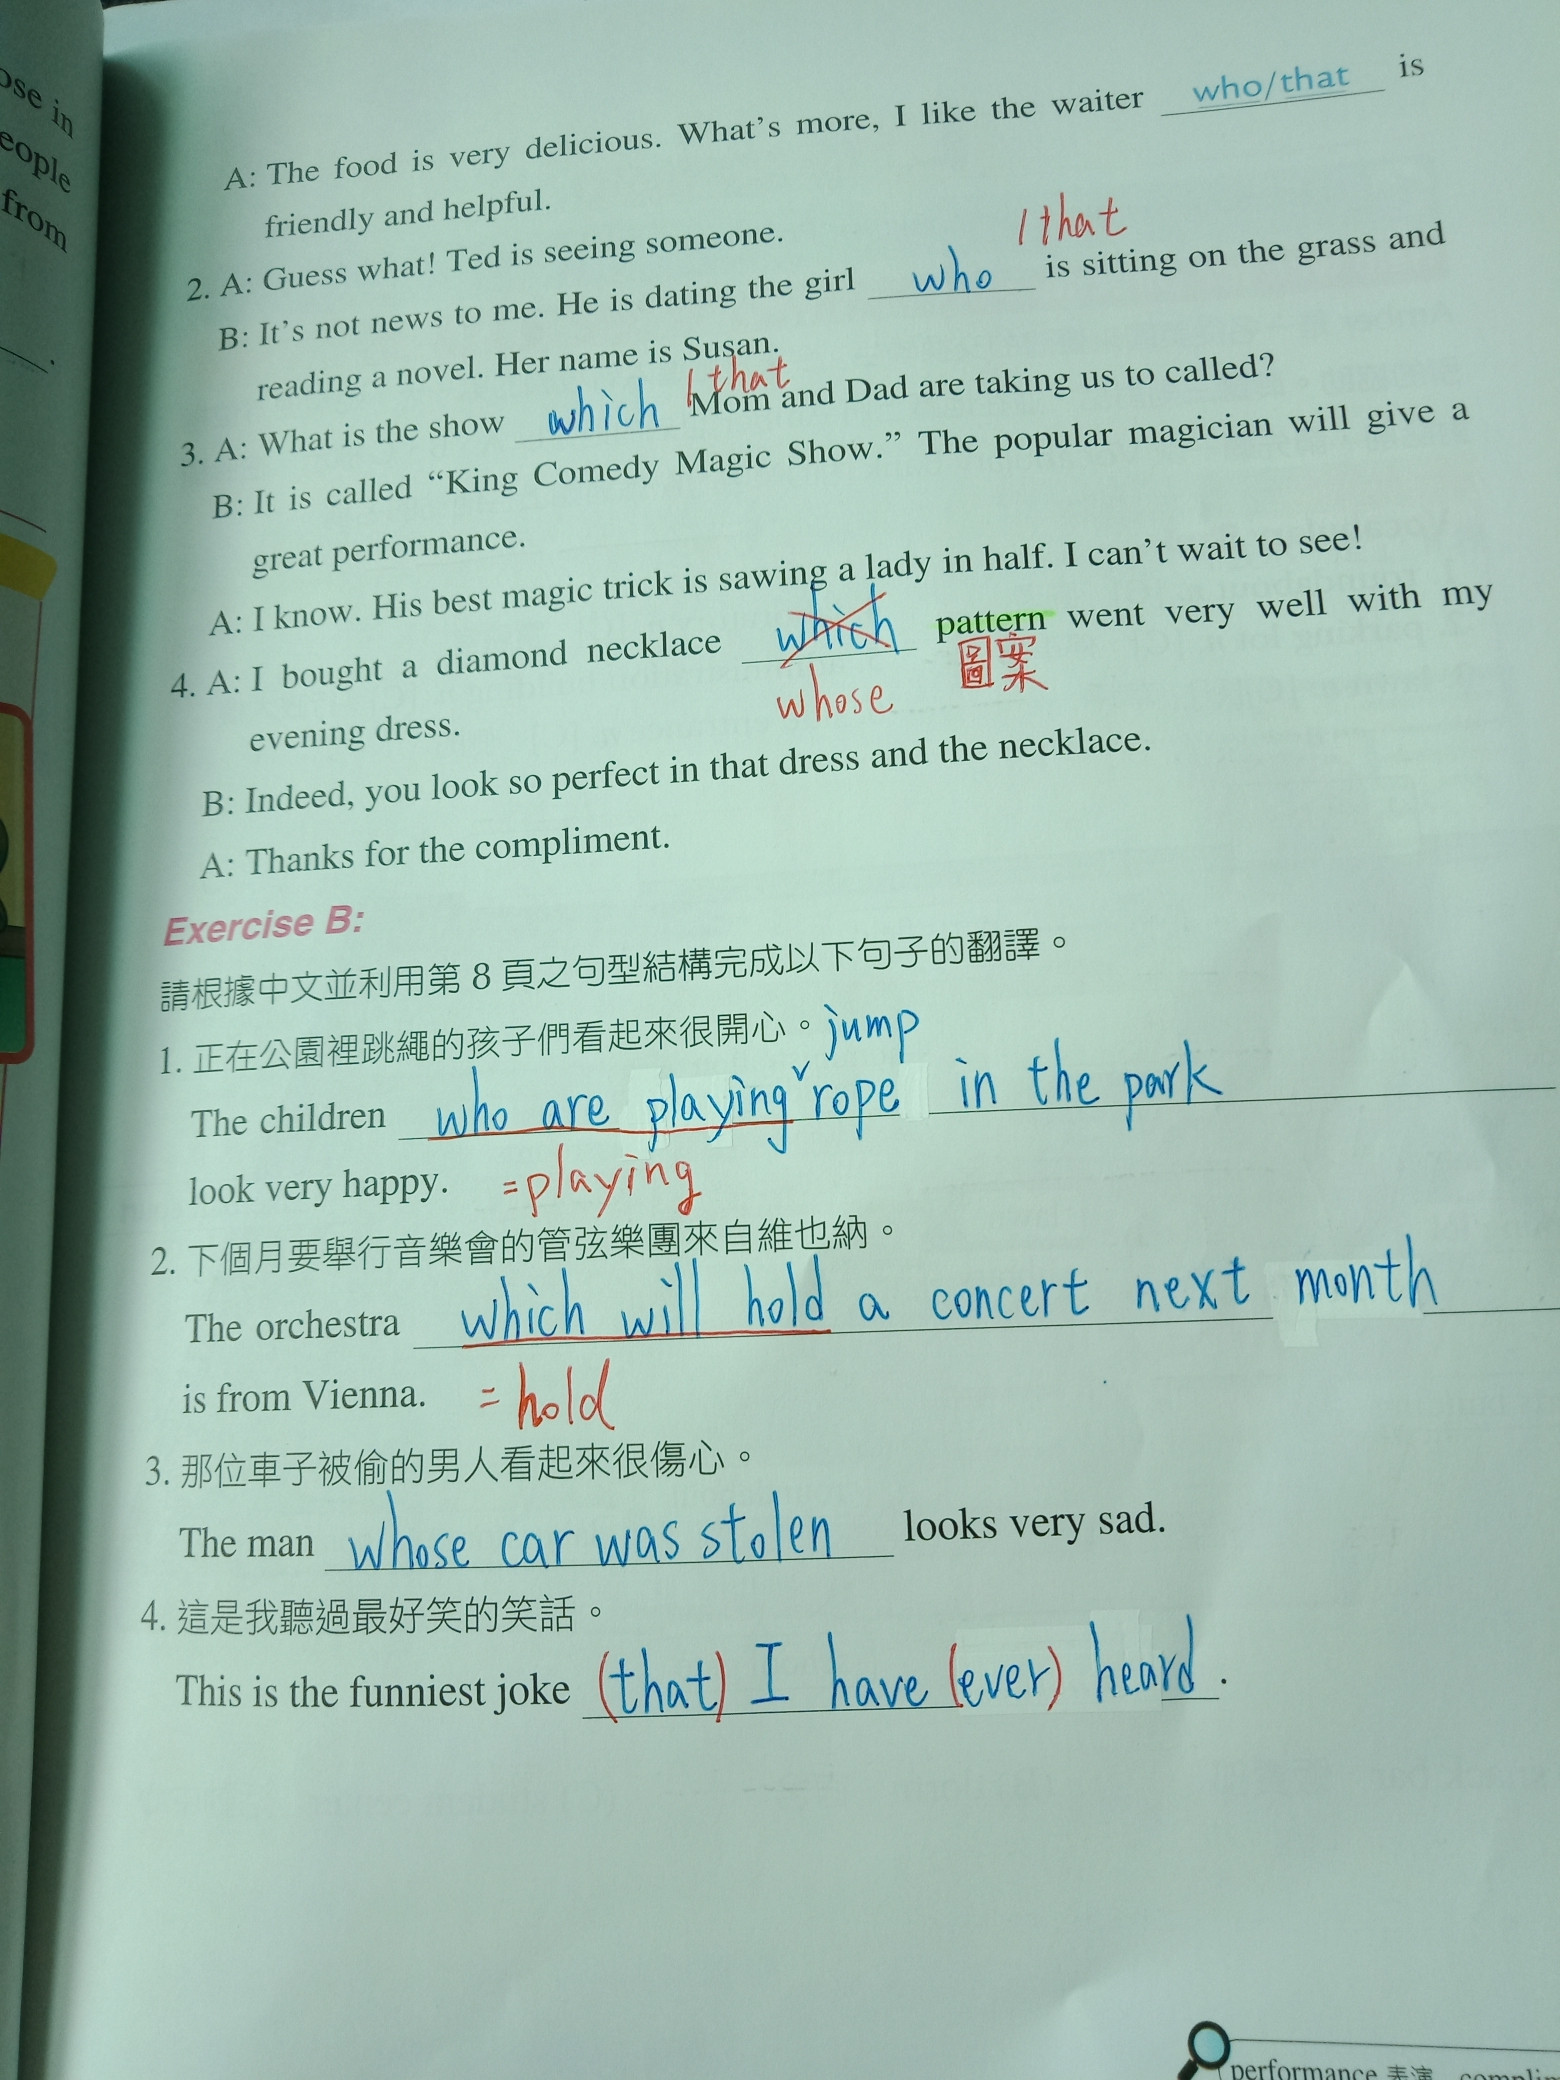 ose in
eople
from
A: The food is very delicious. What's more, I like the waiter who/that is
friendly and helpful.
2. A: Guess what! Ted is seeing someone.
/ that
B: It's not news to me. He is dating the girl who is sitting on the grass and
reading a novel. Her name is Susan.
/ that
3. A: What is the show which Mom and Dad are taking us to called?
B: It is called “King Comedy Magic Show.” The popular magician will give a
great performance.
A: I know. His best magic trick is sawing a lady in half. I can't wait to see!
4. A: I bought a diamond necklace which pattern went very well with my
whose 圖案
evening dress.
B: Indeed, you look so perfect in that dress and the necklace.
A: Thanks for the compliment.
Exercise B:
請根據中文並利用第 8 頁之句型結構完成以下句子的翻譯。
1. 正在公園裡跳繩的孩子們看起來很開心。 jump
The children who are playing rope in the park
look very happy. =playing
2. 下個月要舉行音樂會的管弦樂團來自維也納。
The orchestra which will hold a concert next month
is from Vienna. = hold
3. 那位車子被偷的男人看起來很傷心。
The man whose car was stolen looks very sad.
4. 這是我聽過最好笑的笑話。
This is the funniest joke (that) I have (ever) heard.
performance 表演